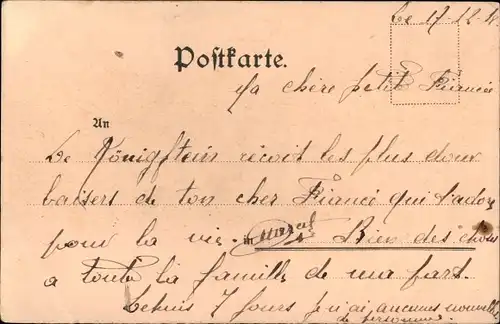 Le 17-12-
Postkarte.
Ma chère petite Fiancée
An
De Königstein reçoit les plus doux
baisers de ton cher Fiancé qui t'adore
pour la vie. Marcel Bien des choses
a toute la famille de ma part.
Depuis 7 jours j'n'ai aucunes nouvelles
de personne.